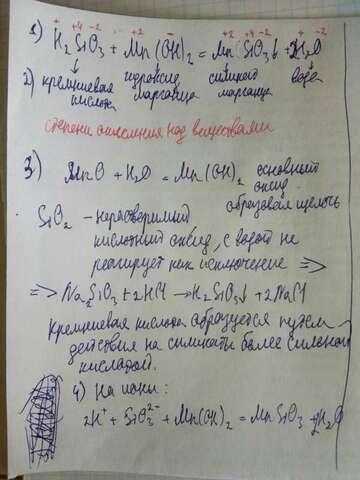 + +4 -2 +2 - +2 +4 -2 + -2
1) H₂SiO₃ + Mn(OH)₂ = MnSiO₃↓ + 2H₂O
2) кремниевая гидроксид силикат вода
кислота марганца марганца
степени окисления над веществами
3) MnO + H₂O = Mn(OH)₂ основный
оксид
образовал щелочь
SiO₂ - нерастворимый
кислотный оксид, с водой не
реагирует как исключение =>
=> Na₂SiO₃ + 2HCl → H₂SiO₃↓ + 2NaCl
Кремниевая кислота образуется путем
действия на силикаты более сильной
кислотой.
4) На ионы:
2H⁺ + SiO₃²⁻ + Mn(OH)₂ = MnSiO₃ + 2H₂O